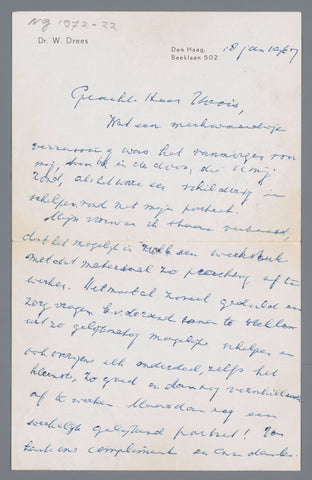 NG 1972-22
Dr. W. Drees
Den Haag, 18 jan 1967
Beeklaan 502
Geachte Heer
Wat een merkwaardige
verrassing was het vanmorgen voor
mij, toen ik in de doos, die U mij
zond, als het ware een schilderij in
schelpen vond met mijn portret.
Mijn vrouw en ik staan verbaasd,
dat het mogelijk is zulk een werkstuk
met dit materiaal zo prachtig af te
werken. Het moet al zoveel geduld en
zorg vragen bij duizend samen te stellen
uit zo gelijkmatig mogelijke schelpen en
ook overigens elk onderdeel, zelfs het
kleinste, zo goed en dan nog verschillend
af te werken. Maar dan nog een
werkelijk gelijkend portret! Ten
zeerste ons compliment en onze dank.